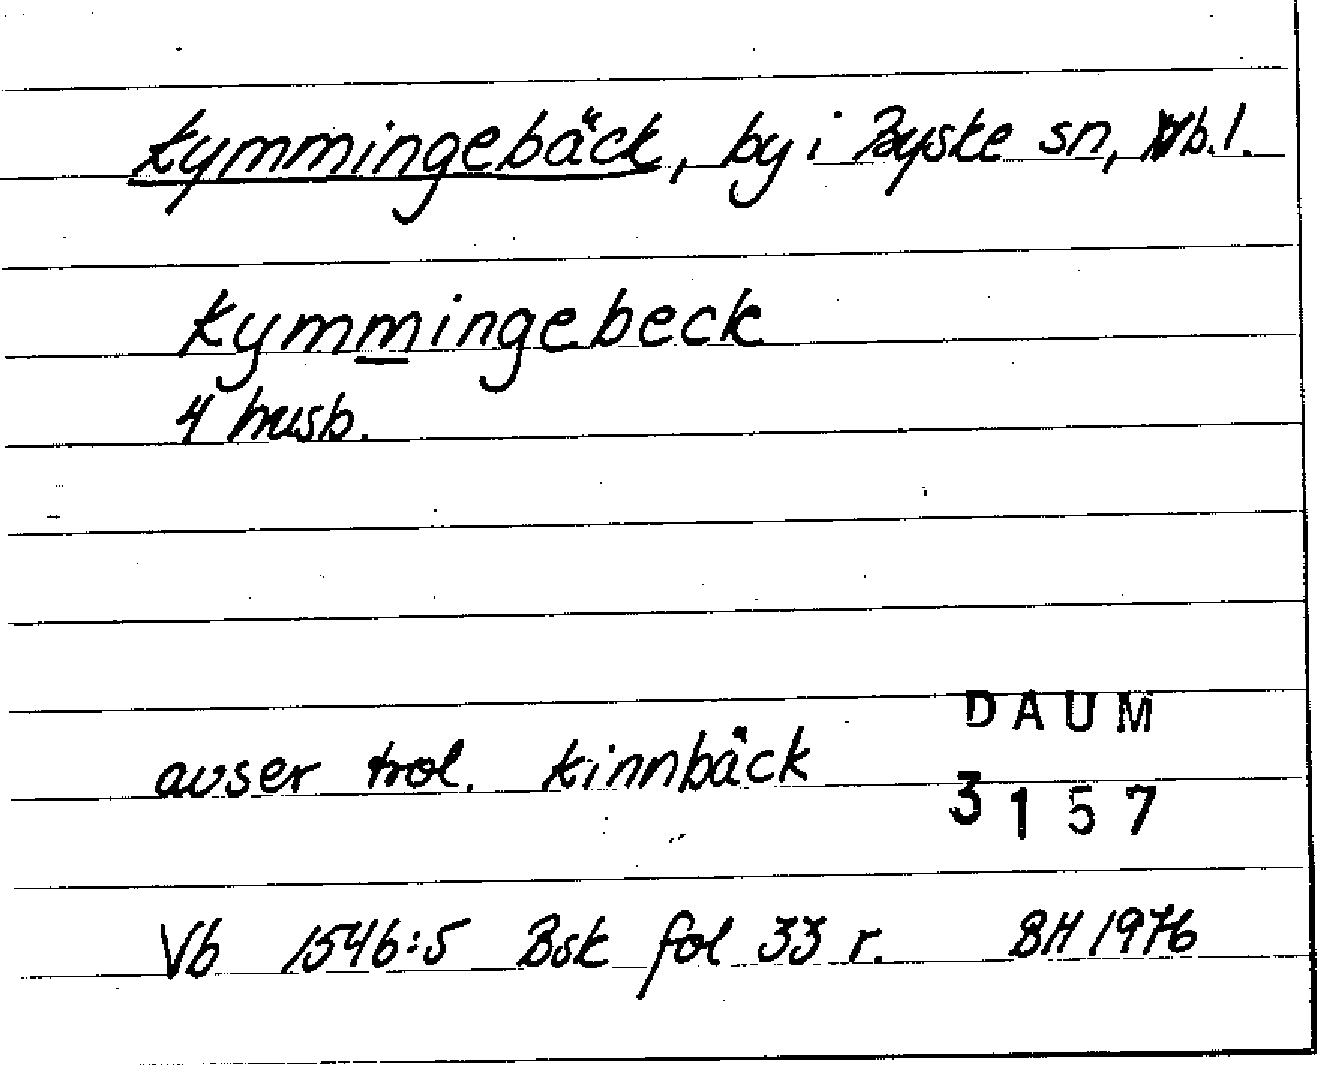 Kymmingebäck, by i Byske sn, Vb.l.
Kymmingebeck
4 husb.
DAUM
avser trol. Kinnbäck
3157
Vb 1546:5 Bsk fol 33 r. BH 1976